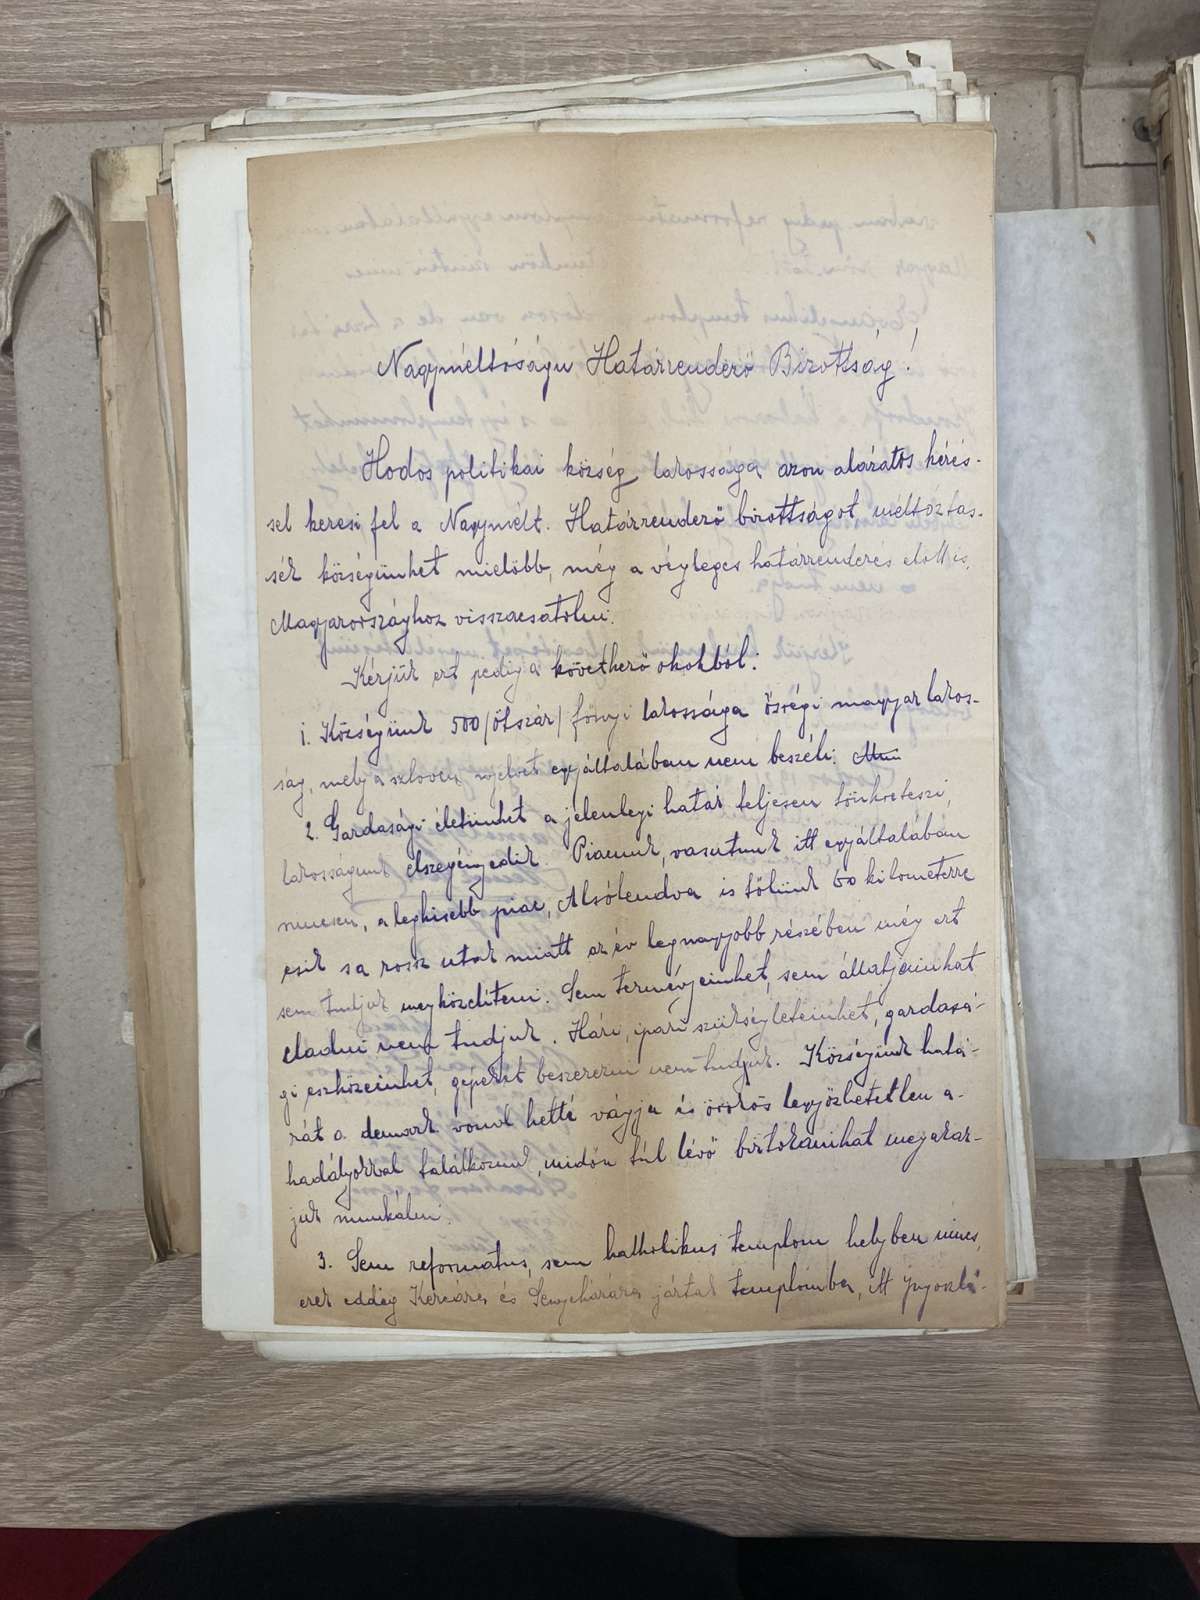 Nagyméltóságu Határrendező Bizottság!
Hodos politikai község lakossága azon alázatos kérés-
sel keresi fel a Nagymélt. Határrendező bizottságot méltóztas-
sék községünket mielőbb, még a végleges határrendezés előtt is,
Magyarországhoz visszacsatolni.
Kérjük ezt pedig a következő okokból:
1. Községünk 500/ötszáz/ főnyi lakossága őszégi magyar lakos-
ság, mely a szloven nyelvet egyáltalában nem beszéli.
2. Gazdasági életünket a jelenlegi határ teljesen tönkreteszi,
lakosságunk elszegényedik. Piacunk, vasutunk itt egyáltalában
nincsen, a legkisebb piac, Alsólendva is tőlünk 60 kilometerre
esik s a rossz utak miatt az év legnagyobb részében még ezt
sem tudjuk megközelíteni. Sem terményeinket, sem állatjainkat
eladni nem tudjuk. Házi, ipari szükségleteinket, gazdasá-
gi eszközeinket, gépeket beszerezni nem tudjuk. Községünk hatá-
rát a demark vonal ketté vágja és örökös legyőzhetetlen a-
kadályokkal találkozunk, midőn túl lévő birtokainkat megakar-
juk munkálni.
3. Sem reformatus, sem katholikus templom helyben nincs,
ezek eddig Kercára és Szenyekirára jártak templomba, itt Jugoszlá-